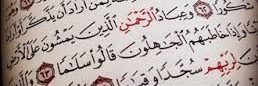 لِّمَنْ أَرَادَ أَن يَذَّكَّرَ أَوْ أَرَادَ
شُكُورًا ٦٢ وَعِبَادُ ٱلرَّحْمَٰنِ ٱلَّذِينَ يَمْشُونَ عَلَى ٱلْأَرْضِ
وَإِذَا خَاطَبَهُمُ ٱلْجَٰهِلُونَ قَالُوا۟ سَلَٰمًا ٦٣
لِرَبِّهِمْ سُجَّدًا